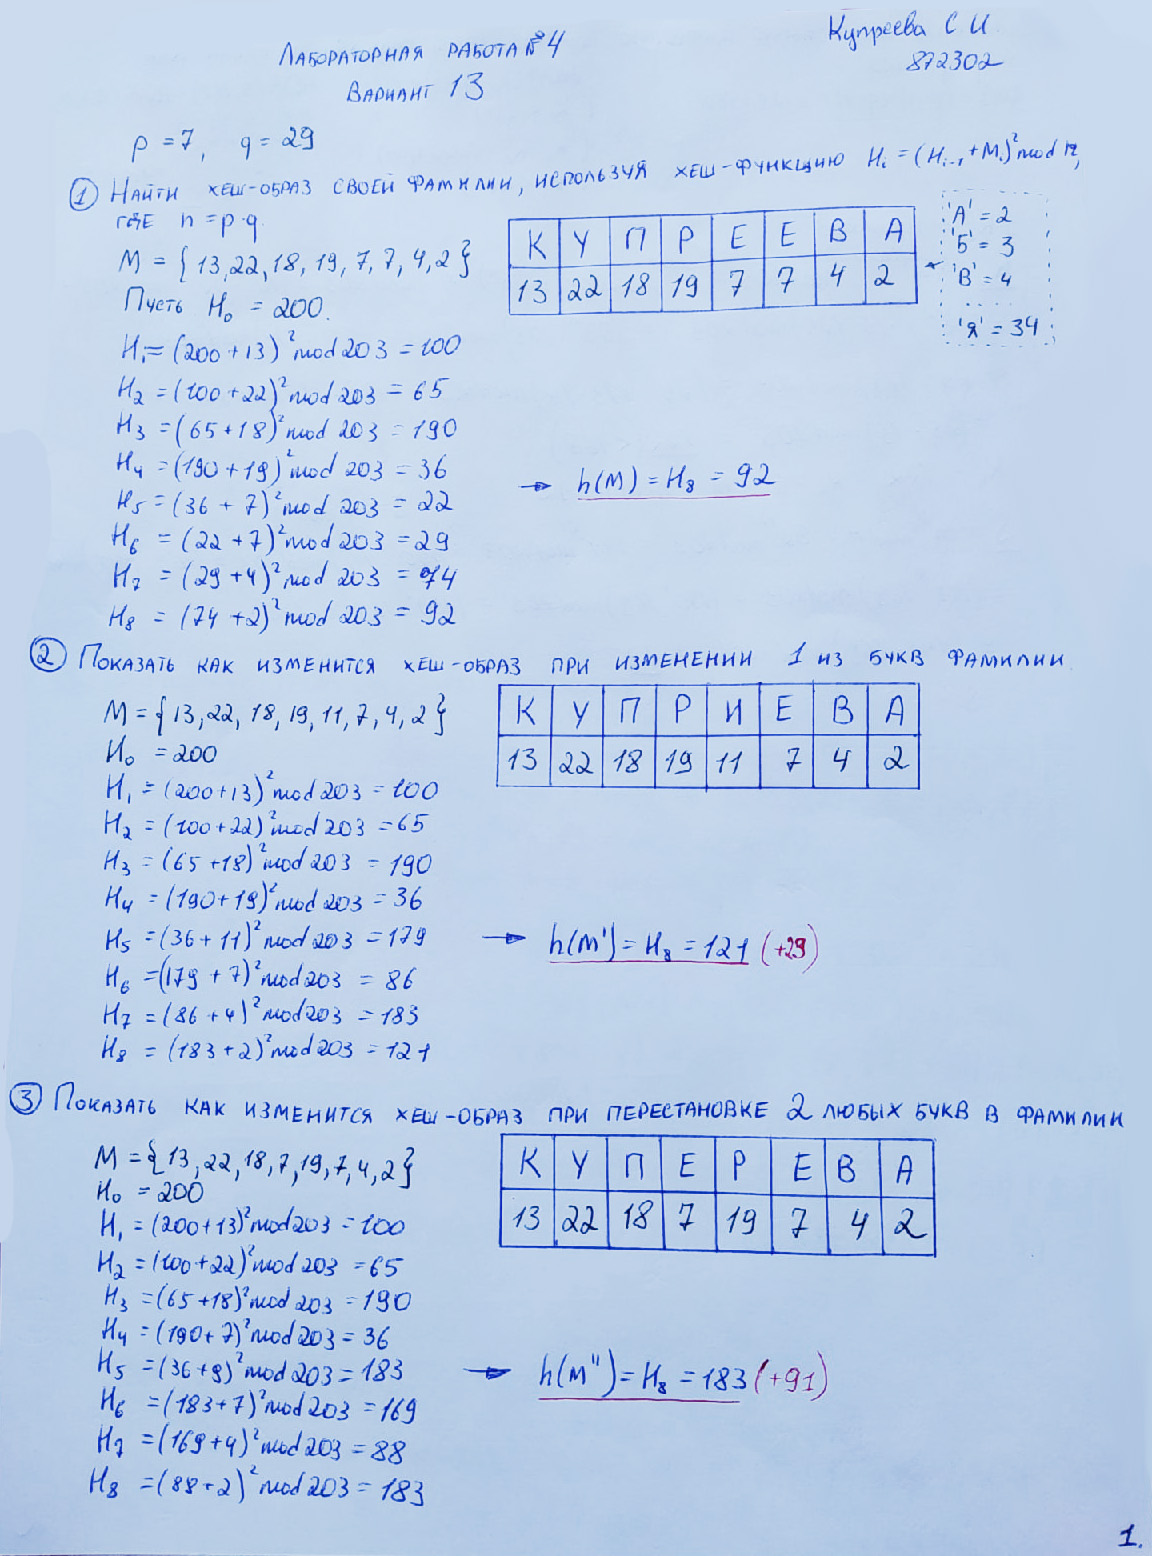 Купреева С И
872302
Лабораторная работа №4
Вариант 13
p = 7, q = 29
① Найти хеш-образ своей фамилии, используя хеш-функцию Hᵢ = (Hᵢ₋₁ + Mᵢ)² mod n,
где n = p·q
К У П Р Е Е В А
13 22 18 19 7 7 4 2
'А' = 2
'Б' = 3
'В' = 4
....
'Я' = 34
M = {13, 22, 18, 19, 7, 7, 4, 2}
Пусть H₀ = 200.
H₁ = (200 + 13)² mod 203 = 100
H₂ = (100 + 22)² mod 203 = 65
H₃ = (65 + 18)² mod 203 = 190
H₄ = (190 + 19)² mod 203 = 36
H₅ = (36 + 7)² mod 203 = 22
H₆ = (22 + 7)² mod 203 = 29
H₇ = (29 + 4)² mod 203 = 74
H₈ = (74 + 2)² mod 203 = 92
→ h(M) = H₈ = 92
② Показать как изменится хеш-образ при изменении 1 из букв фамилии
К У П Р И Е В А
13 22 18 19 11 7 4 2
M = {13, 22, 18, 19, 11, 7, 4, 2}
H₀ = 200
H₁ = (200 + 13)² mod 203 = 100
H₂ = (100 + 22)² mod 203 = 65
H₃ = (65 + 18)² mod 203 = 190
H₄ = (190 + 19)² mod 203 = 36
H₅ = (36 + 11)² mod 203 = 179
H₆ = (179 + 7)² mod 203 = 86
H₇ = (86 + 4)² mod 203 = 183
H₈ = (183 + 2)² mod 203 = 121
→ h(M') = H₈ = 121 (+29)
③ Показать как изменится хеш-образ при перестановке 2 любых букв в фамилии
К У П Е Р Е В А
13 22 18 7 19 7 4 2
M = {13, 22, 18, 7, 19, 7, 4, 2}
H₀ = 200
H₁ = (200 + 13)² mod 203 = 100
H₂ = (100 + 22)² mod 203 = 65
H₃ = (65 + 18)² mod 203 = 190
H₄ = (190 + 7)² mod 203 = 36
H₅ = (36 + 9)² mod 203 = 183
H₆ = (183 + 7)² mod 203 = 169
H₇ = (169 + 4)² mod 203 = 88
H₈ = (88 + 2)² mod 203 = 183
→ h(M'') = H₈ = 183 (+91)
1.